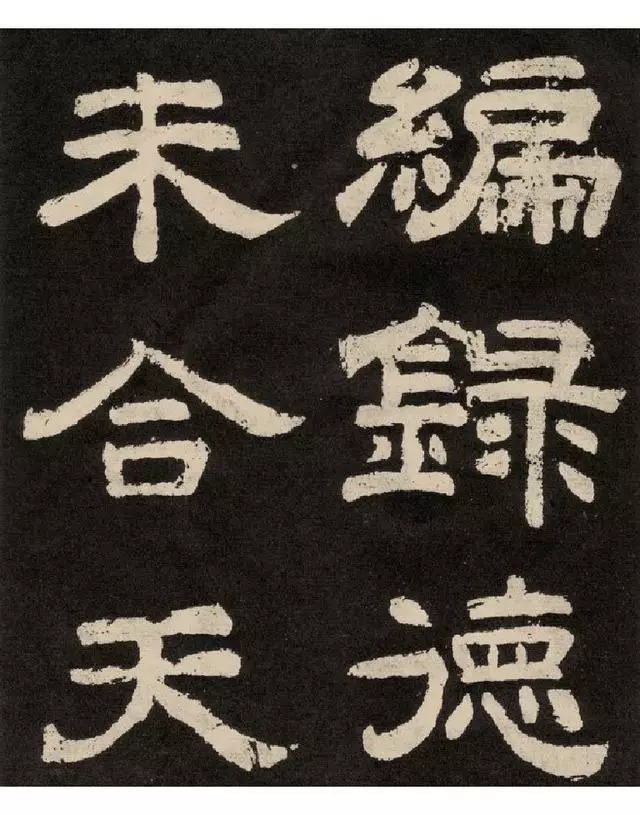 編錄德
未合天